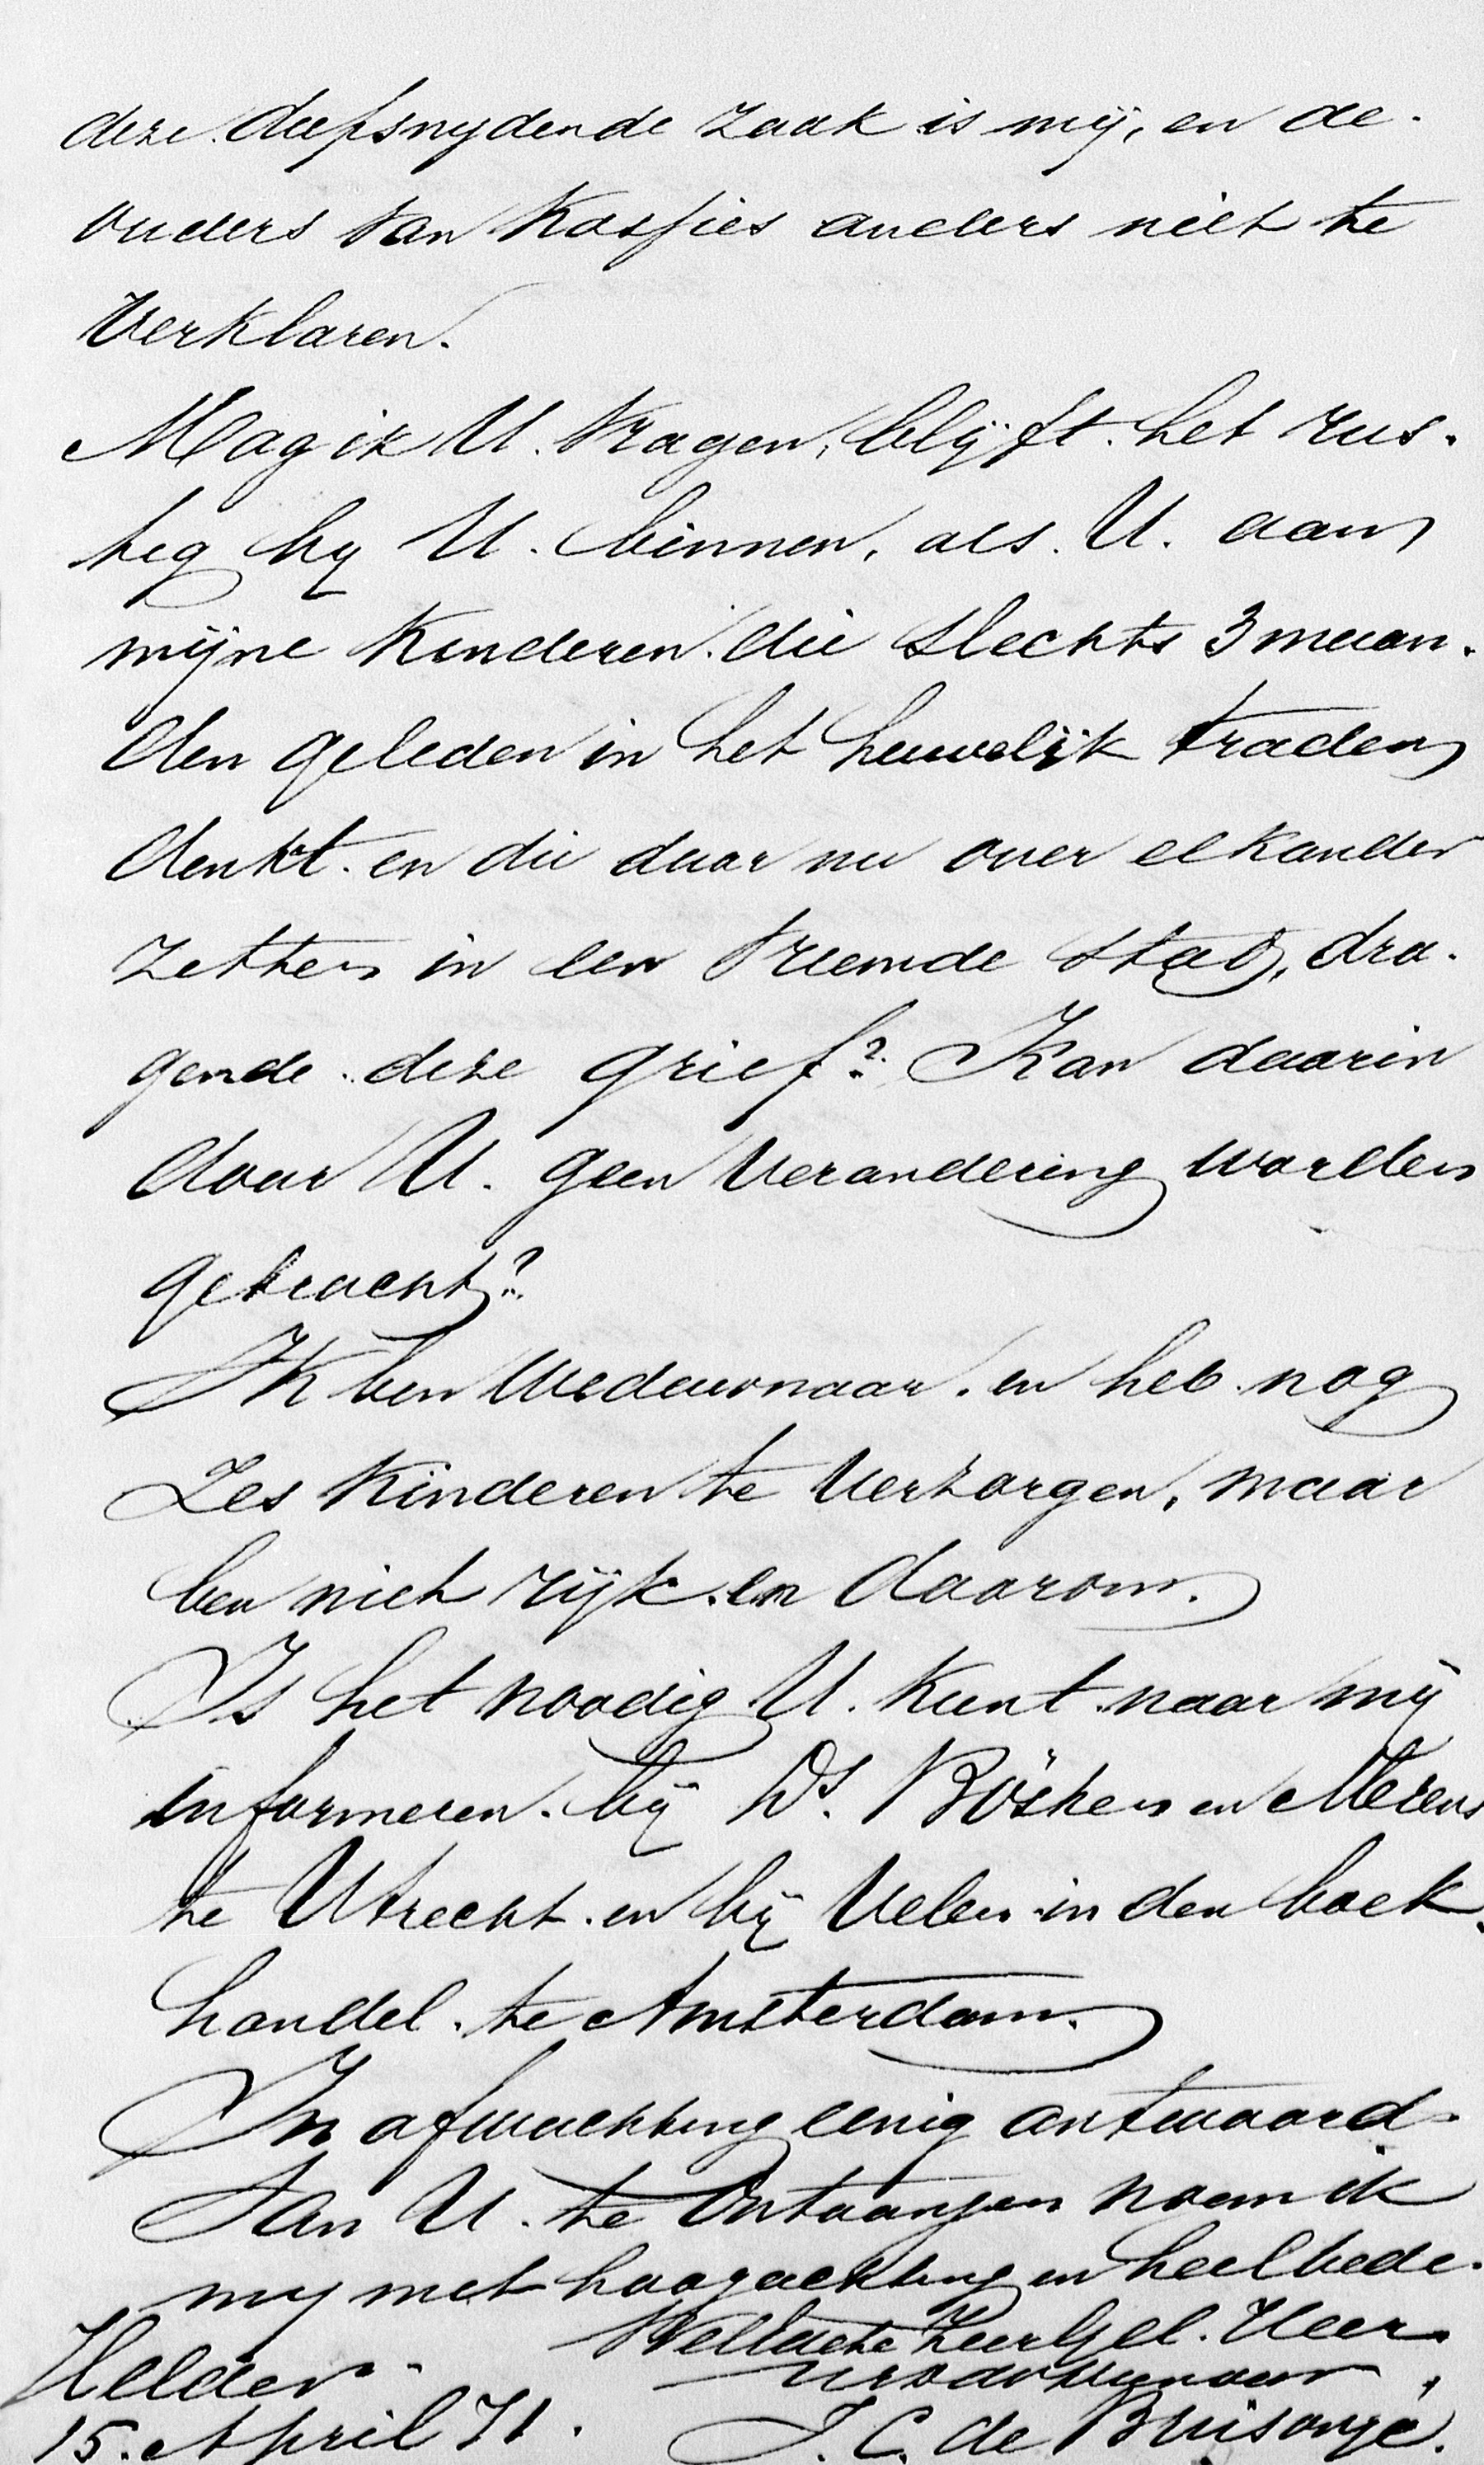 deze diepsnydende zaak is mij, en de
ouders van Kosjies anders niet te
verklaren.
Mag ik U. vragen, blijft het rus-
tig by U. binnen, als U. aan
mijne kinderen die slechts 3 maan-
den geleden in het huwelijk traden
denkt. en die daar nu over elkander
zetten in een vreemde stad, dra-
gende deze grief? Kan daarin
door U. geen verandering worden
gebracht?
Ik ben weduwnaar. en heb nog
zes kinderen te verzorgen, maar
ben niet rijk. en daarom.
Is het noodig U. kunt naar mij
informeren. bij Ds. Böskens en Merens
te Utrecht. en bij velen in den boek-
handel. te Amsterdam.
In afwachting eenig antwoord
van U. te ontvangen noem ik
my met hoogachting en heelbede.
WelEdele ZeerGel. Heer
Helder
J. C. de Buisonjé.
15. April 71.